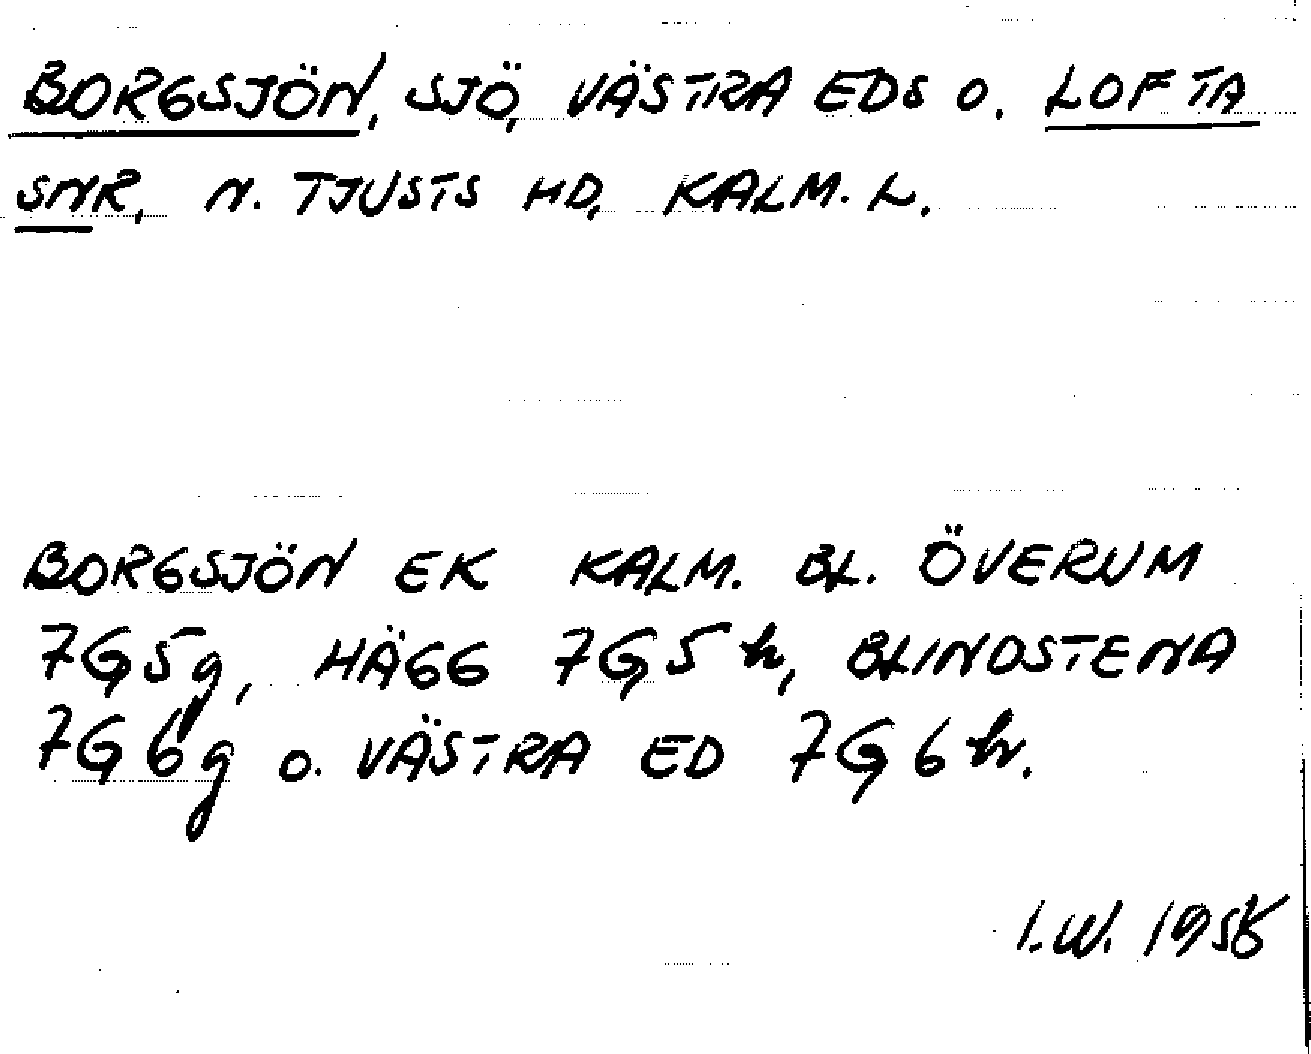 BORGSJÖN, SJÖ, VÄSTRA EDS O. LOFTA
SNR, N. TJUSTS HD, KALM. L.
BORGSJÖN EK KALM. BL. ÖVERUM
7G5g, HÄGG 7G5h, BLINDSTENA
7G6g O. VÄSTRA ED 7G6h.
I.W.